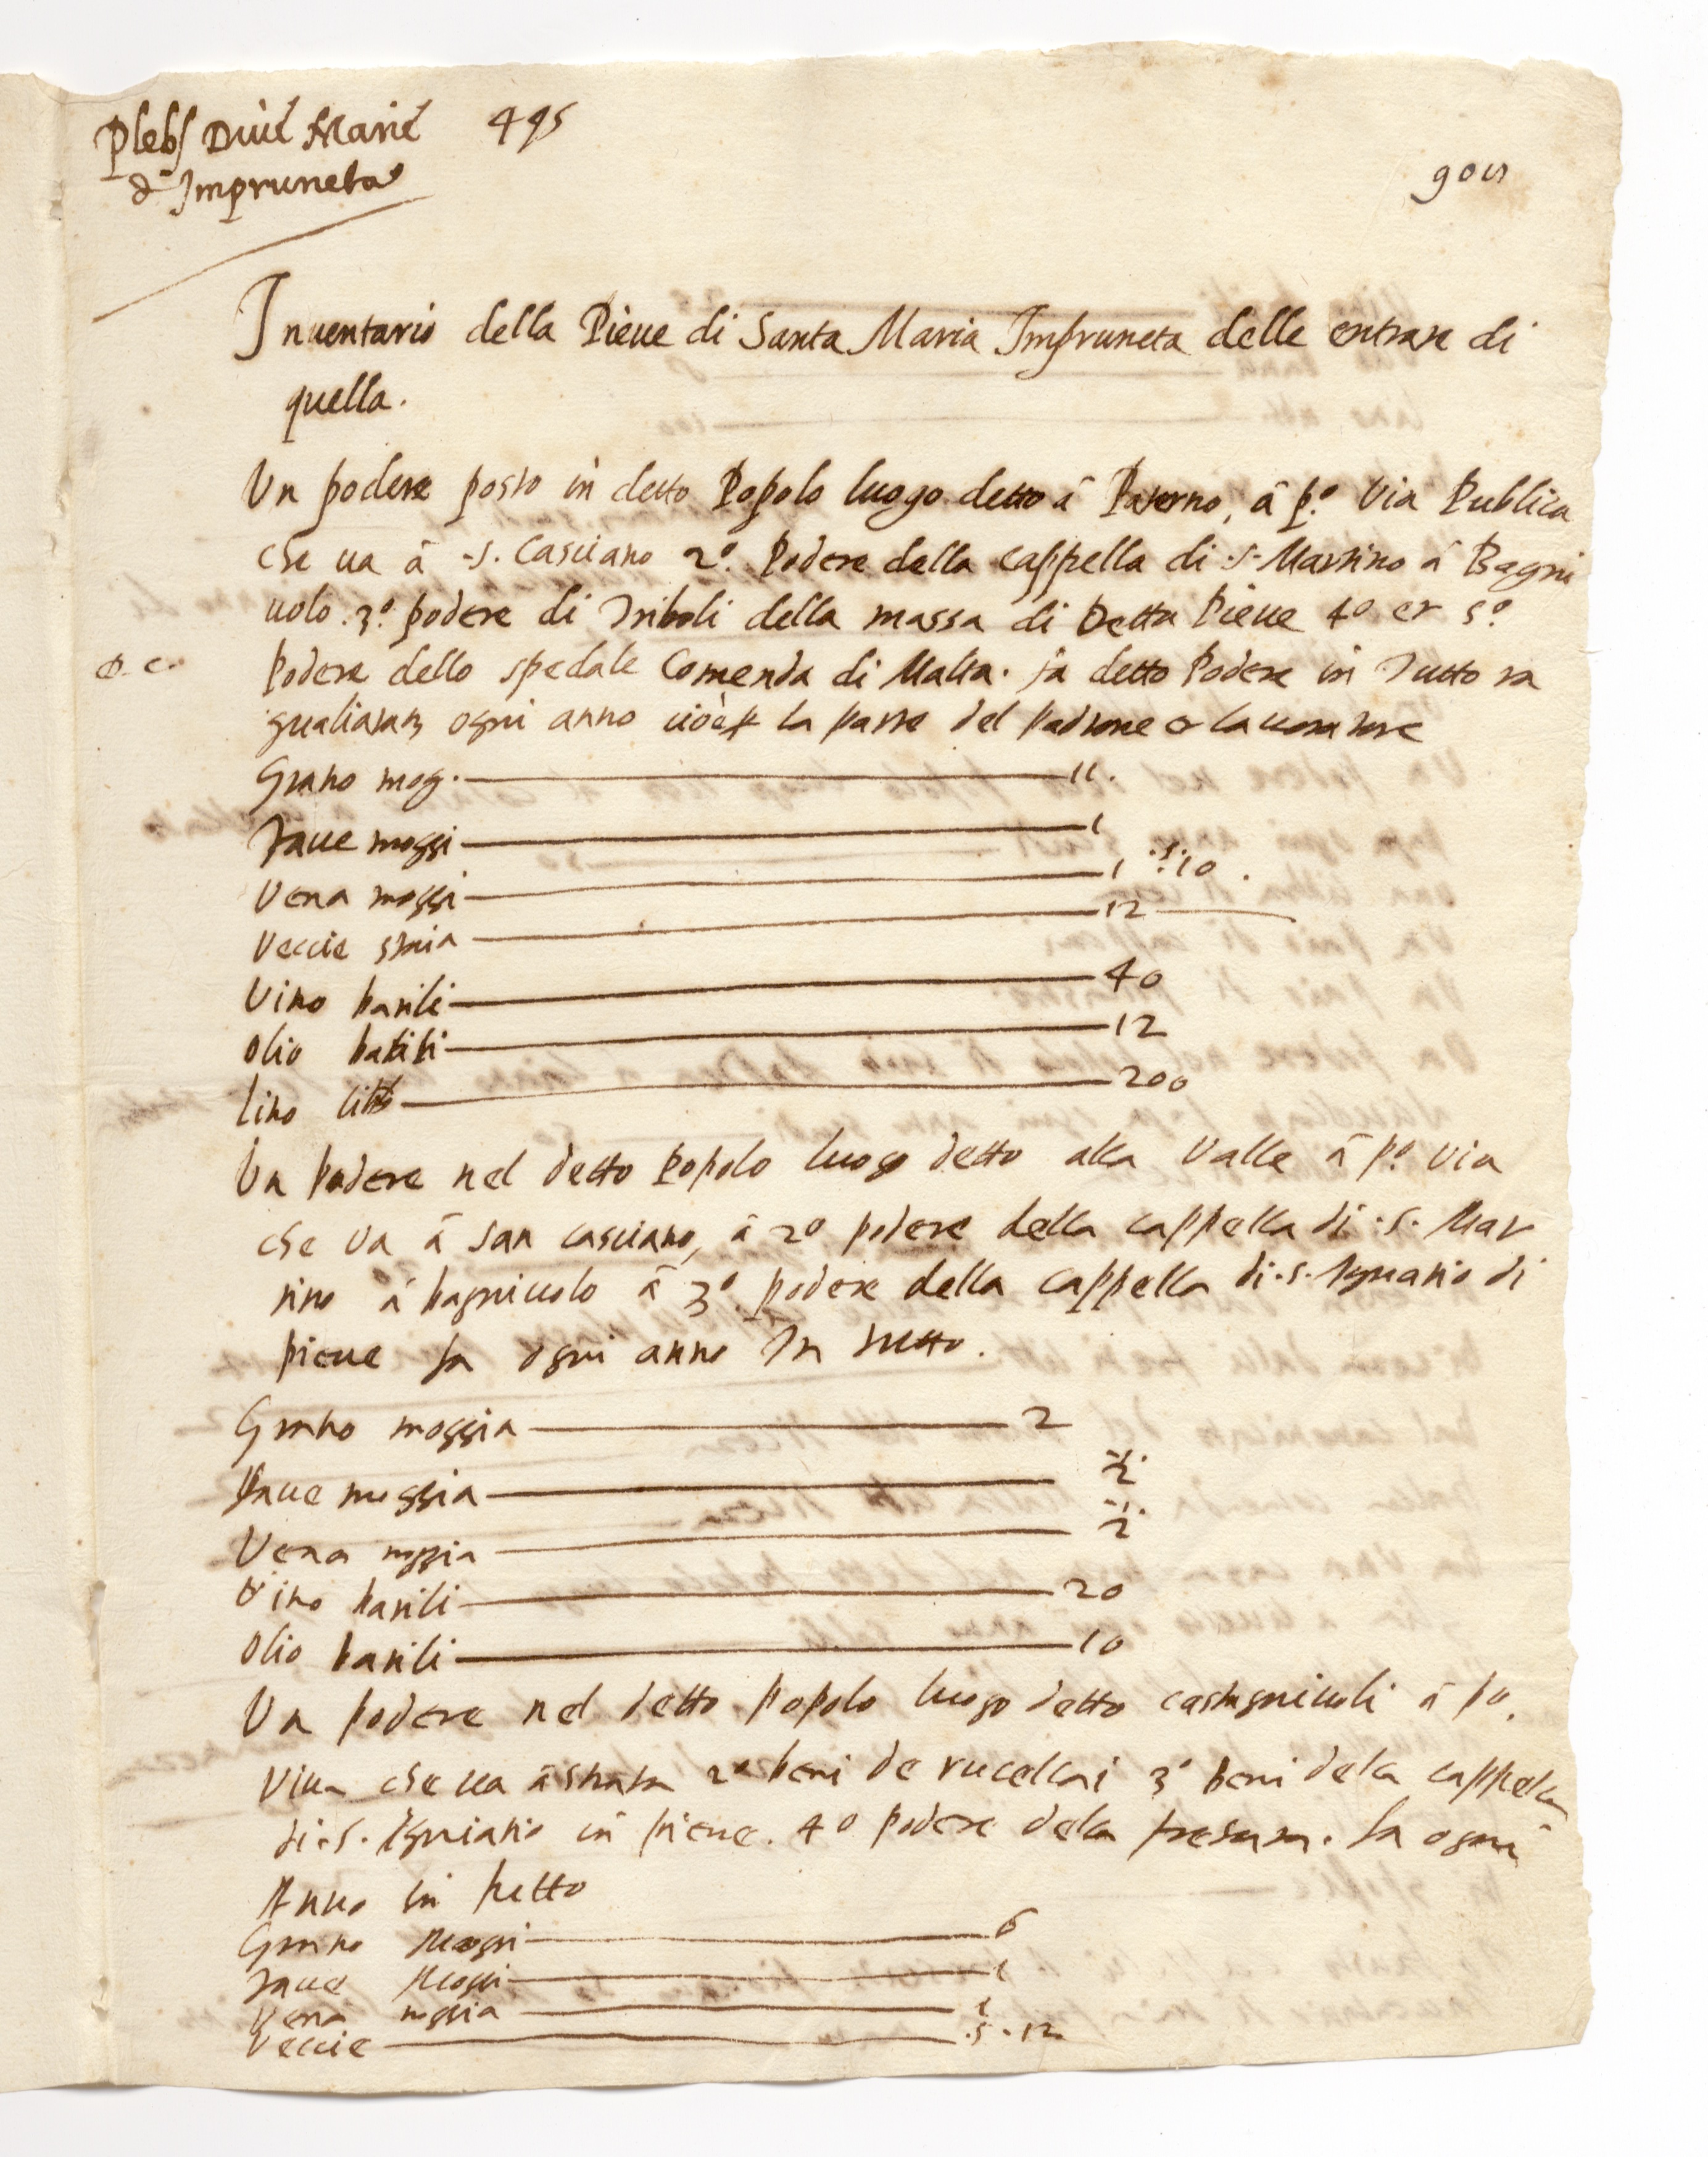 Plebs Diuę Marię 495
d Impruneta
901
Inuentario della Pieue di Santa Maria Impruneta delle entrate di
quella.
Un podere posto in detto Popolo luogo detto â Paterno, â p.º Via Publica
che ua â .S. Casciano 2º. Podere della cappella di .S. Martino â Bagni
uolo. 3º. podere di Triboli della massa di Detta Pieue 4º et 5º.
Podere dello spedale Comenda di Malta. fa detto Podere in Tutto ra
gualiatam ogni anno cioè la parte del padrone e lauoratore
Grano mog. 11.
Faue moggi 1
Vena moggi 1 .S. 10.
Veccie staia 12
Vino barili 40
olio barili 12
lino libb 200
Un podere nel detto Popolo luogo detto alla Valle â pº. Via
che va â San casciano, â 2º podere della cappella di .S. Mar
tino â bagniuolo â 3º. podere della cappella di .S. Ignatio di
pieue fa ogni anno In tutto.
Grano moggia 2
Faue moggia ½
Vena moggia ½
Vino barili 20
olio barili 10
Un podere nel detto popolo luogo detto castagniuoli â pº.
Via che ua â strata 2º beni de rucellai 3º beni dela cappela
di .S. Igniatio in pieue. 4º podere dela presura. fa ogni
Anno in tutto
Grano Moggi 6
Faue Moggi 1
Vena moggia 1
Veccie .S. 12